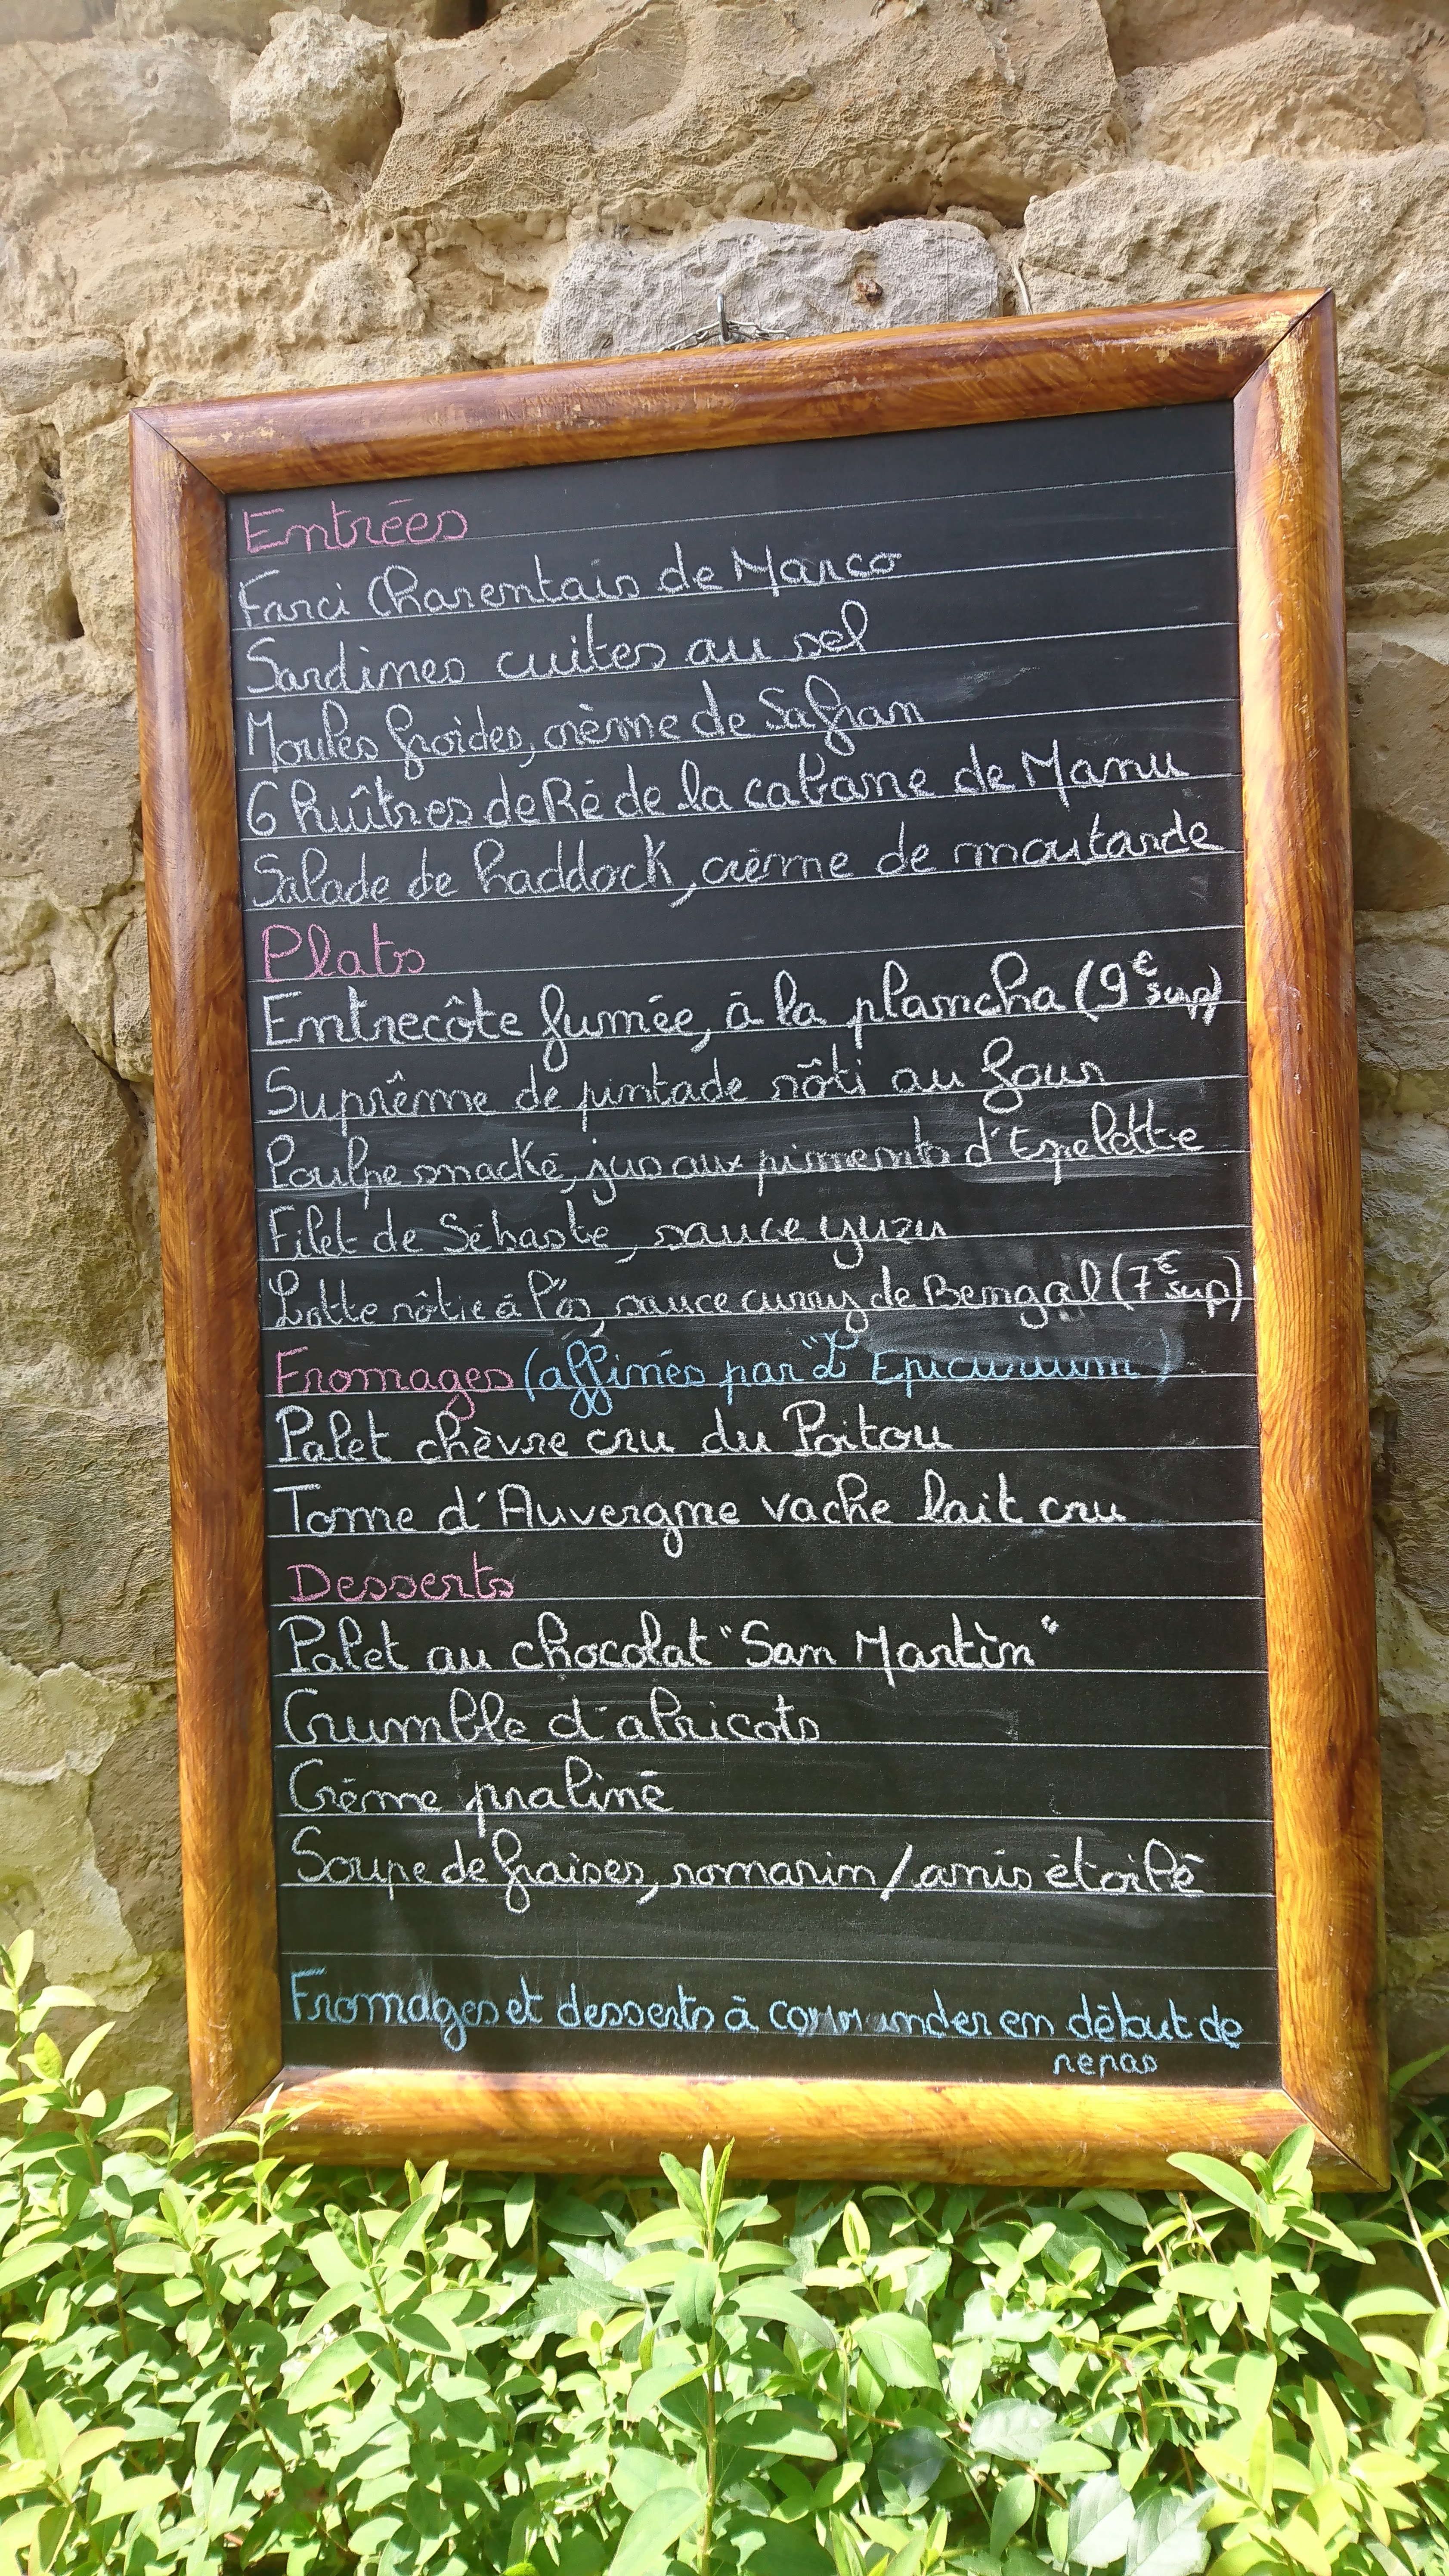 Entrées
Farci Charentais de Marco
Sardines cuites au sel
Moules froides, crème de Safran
6 huîtres de Ré de la cabane de Manu
Salade de haddock, crème de moutarde
Plats
Entrecôte fumée, à la plancha (9€ sup)
Suprême de pintade rôti au four
Poulpe snacké, jus aux piments d'Espelette
Filet de Sébaste, sauce yuzu
Lotte rôtie à l'os, sauce curry de Bengal (7€ sup)
Fromages (affinés par "L'Epicurium")
Palet chèvre cru du Poitou
Tome d'Auvergne vache lait cru
Desserts
Palet au chocolat "San Martin"
Crumble d'abricots
Crème praliné
Soupe de fraises, romarin/anis étoilé
Fromages et desserts à commander en début de
repas